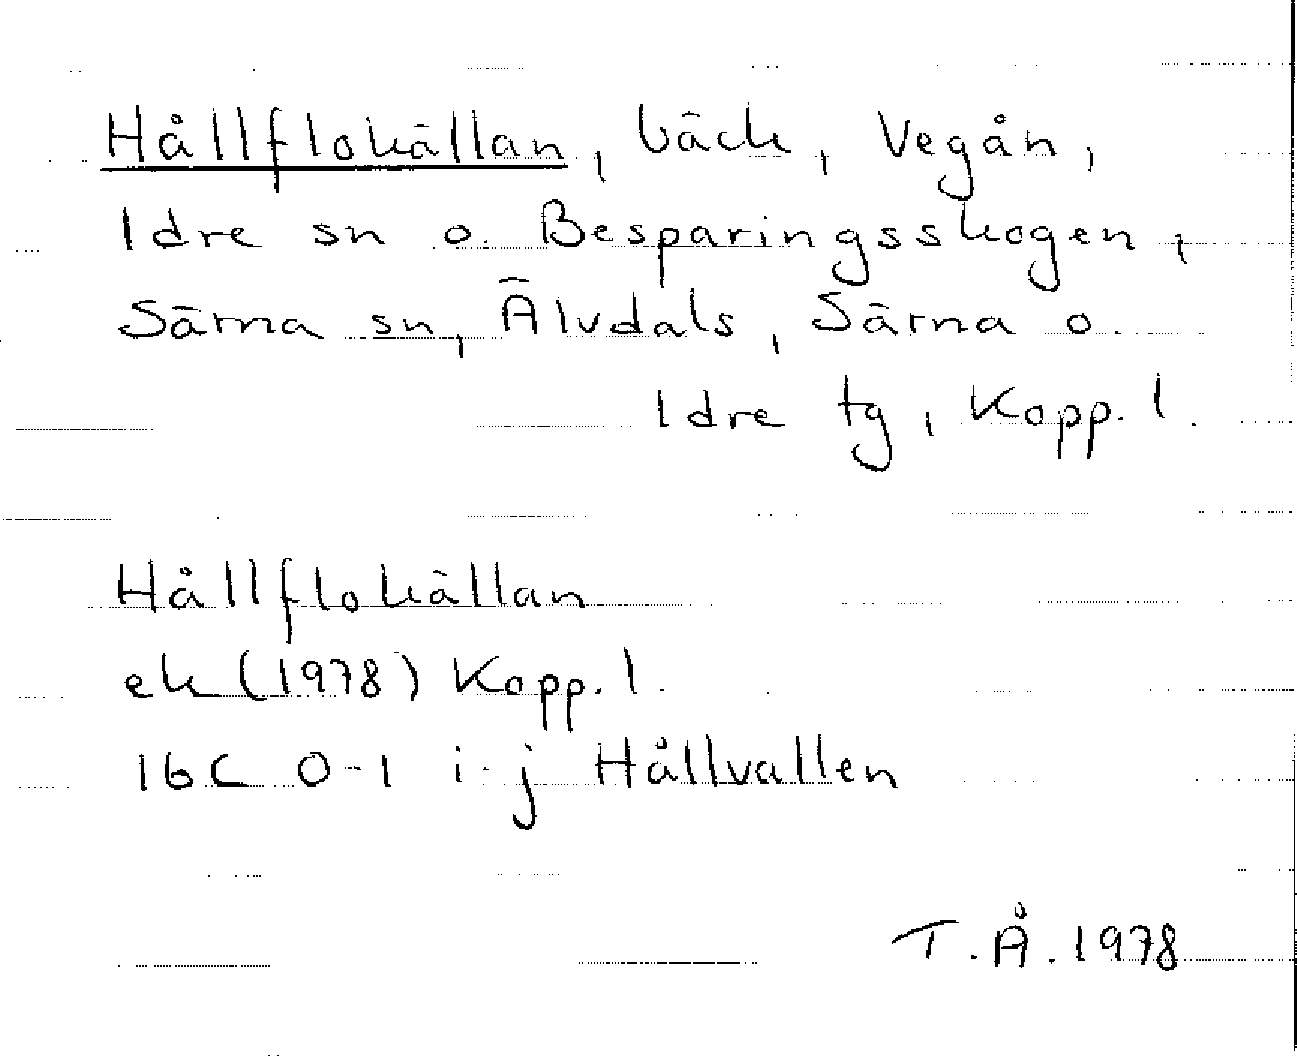 Hållflokällan, bäck, Vegån,
Idre sn o. Besparingsskogen,
Särna sn, Älvdals, Särna o.
Idre tg, Kopp. l.
Hållflokällan
ek (1978) Kopp. l.
16C 0-1 i-j Hållvallen
T.Å. 1978